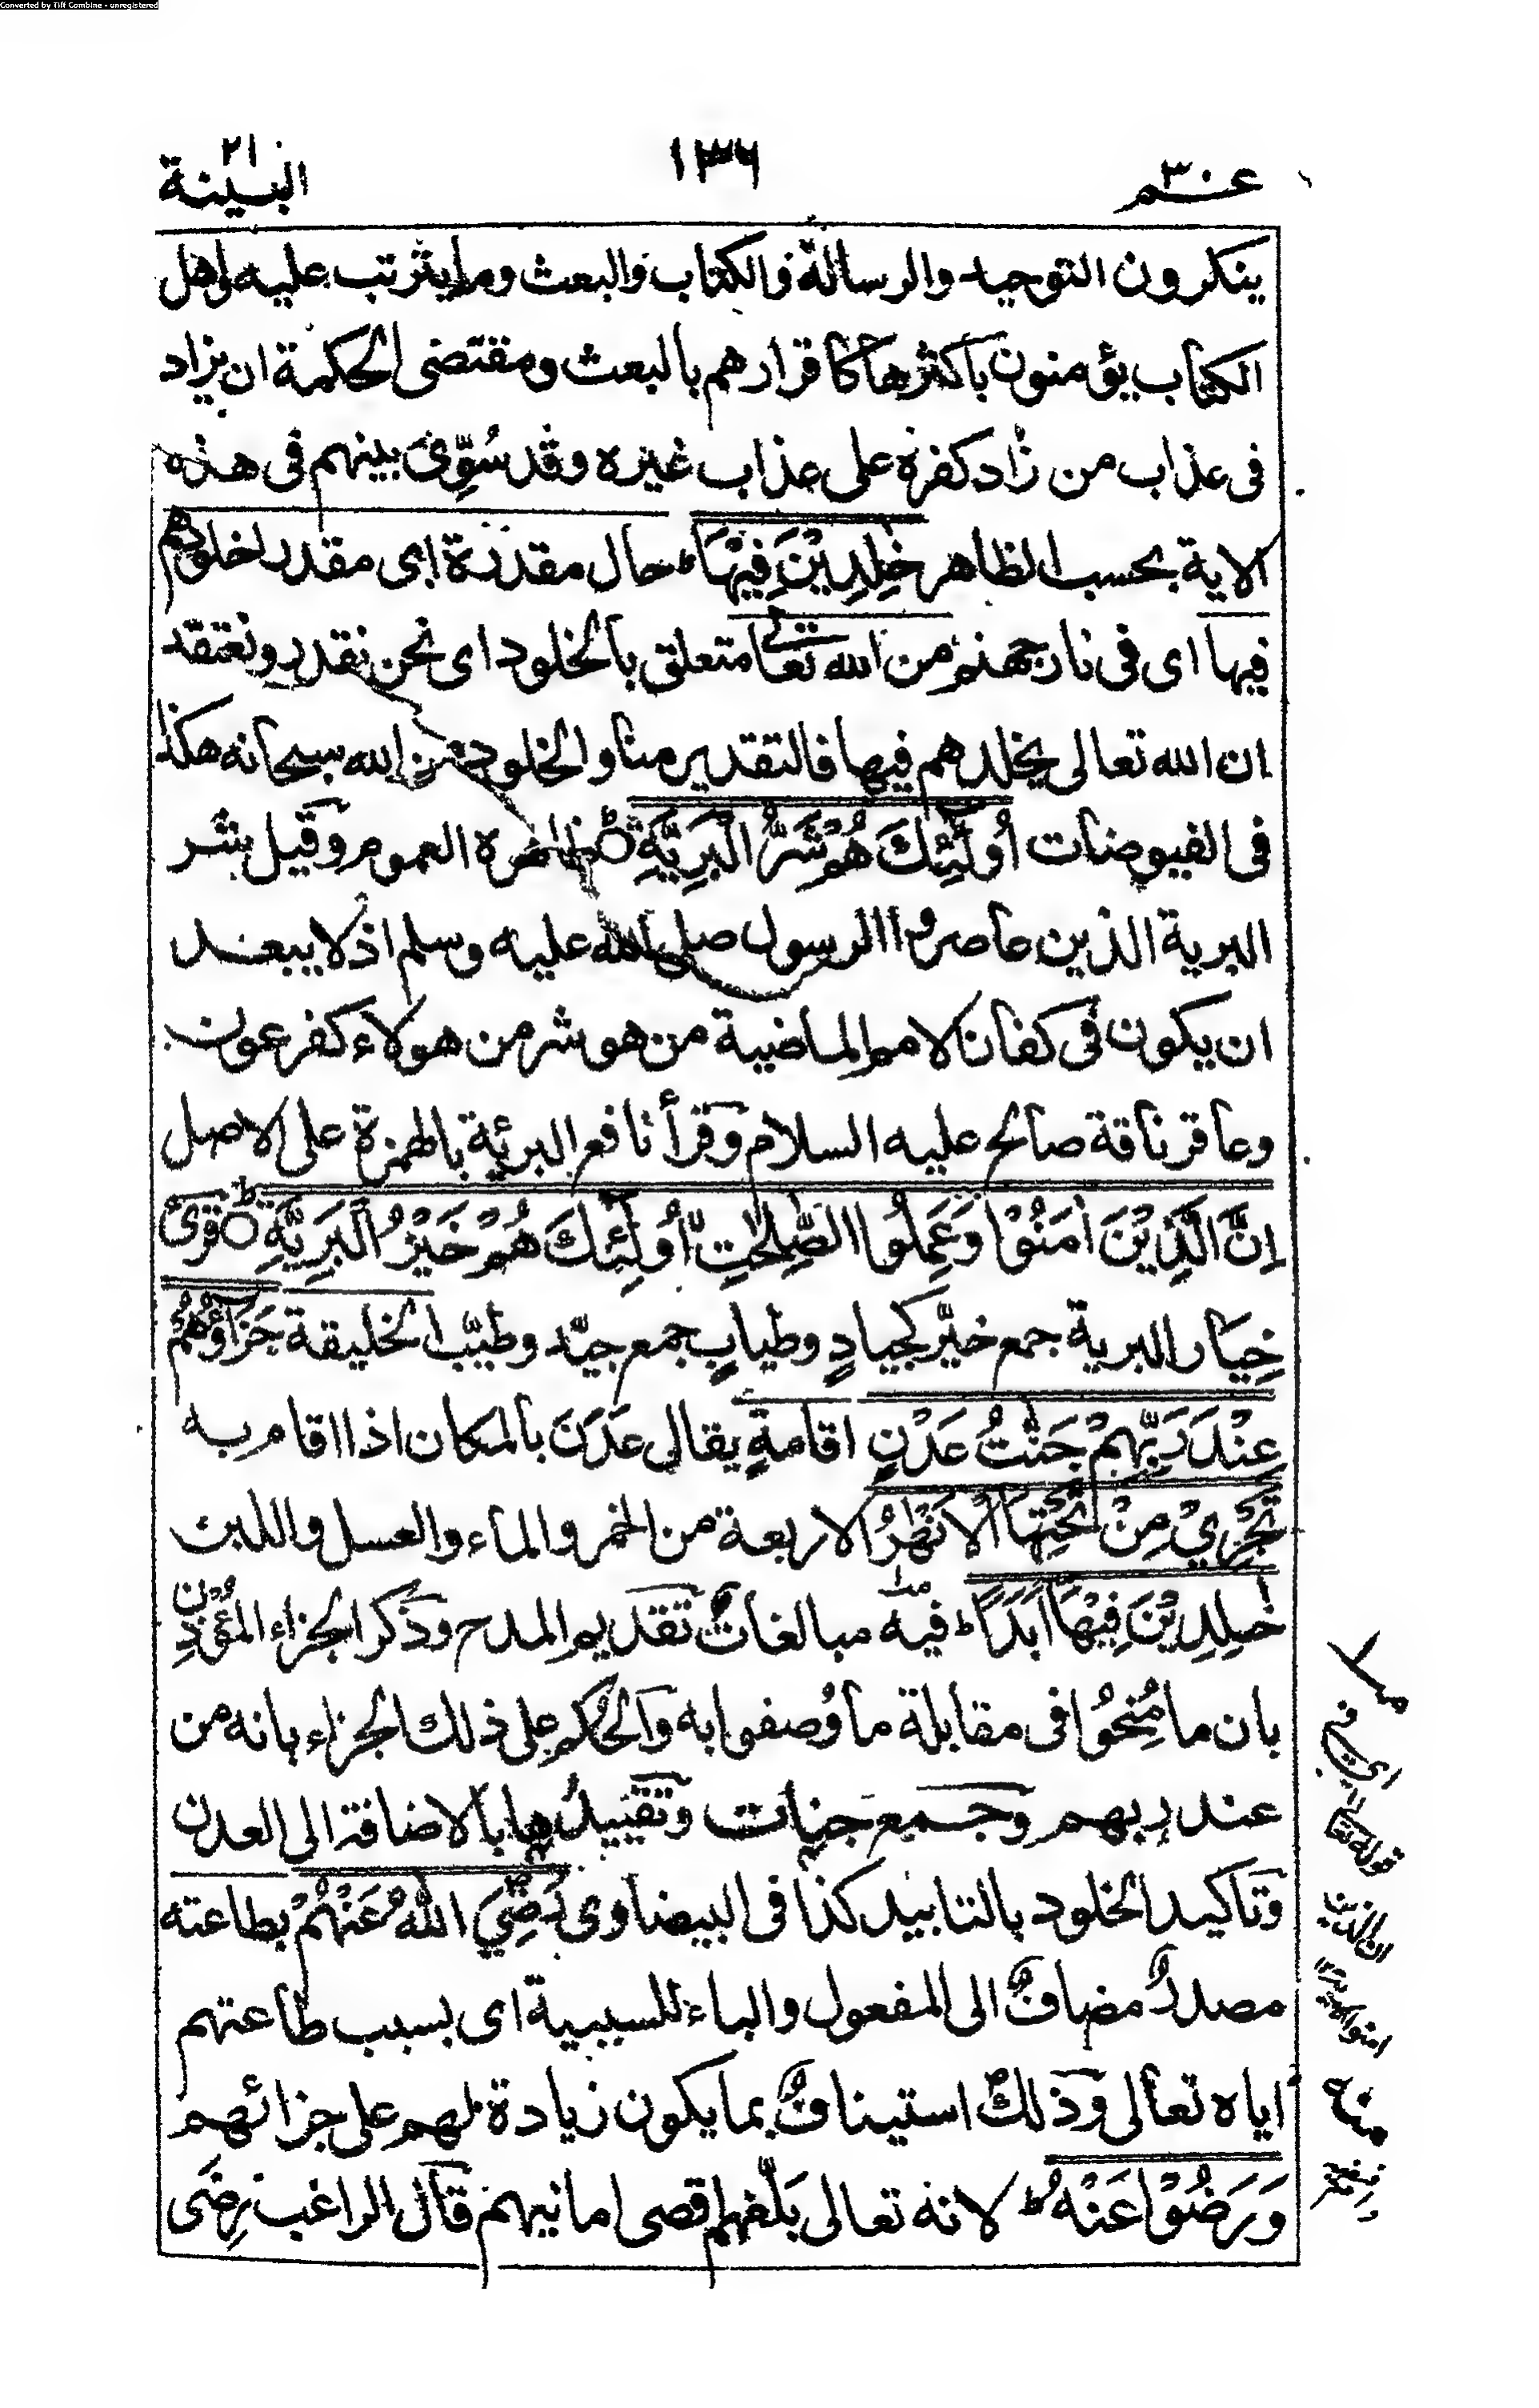 Converted by Tiff Combine - unregistered
عـم ٣٠
١٣٦
البينة ٢١
ينكرون التوحيد والرسالة والكتاب والبعث وما يترتب عليه واهل
الكتاب يؤمنون باكثرها كاقرارهم بالبعث ومقتضى الحكمة ان يزاد
فى عذاب من زاد كفره على عذاب غيره وقد سُوِّىَ بينهم فى هذه
الاية بحسب الظاهر خٰلِدِيْنَ فِيْهَا ط حال مقدرة اى مقدرا خلودهم
فيها اى فى نار جهنم من الله تعالى متعلق بالخلود اى نحن نقدر ونعتقد
ان الله تعالى يخلدهم فيها فالتقدير منا والخلود من الله سبحانه هكذا
فى الفيوضات اُولٰٓئِكَ هُمْ شَرُّ الْبَرِيَّةِ ط ظاهره العموم وقيل شر
البرية الذين عاصروا الرسول صلى الله عليه وسلم اذ لا يبعد
ان يكون فى كفار الامم الماضية من هو شر من هولاء كفرعون
وعاقر ناقة صالح عليه السلام وقرأ نافع البريئة بالهمزة على الاصل
اِنَّ الَّذِيْنَ اٰمَنُوْا وَعَمِلُوا الصّٰلِحٰتِ اُولٰٓئِكَ هُمْ خَيْرُ الْبَرِيَّةِ ط قرئ
خِيَار البرية جمع خيّر كجيادٍ وطيابٍ جمع جيّد وطيّب الخليقة جَزَآؤُهُمْ
عِنْدَ رَبِّهِمْ جَنّٰتُ عَدْنٍ اقامةٍ يقال عَدَنَ بالمكان اذا اقام به
تَجْرِيْ مِنْ تَحْتِهَا الْاَنْهٰرُ الاربعة من الخمر والماء والعسل واللبن
خٰلِدِيْنَ فِيْهَآ اَبَدًا ط فيه مبالغات تقديم المدح وذكر الجزاء المُؤذِن
بان ما مُنِحُوا فى مقابلة ما وُصفوا به والحُكم على ذلك الجزاء بانه من
عند ربهم وجمع جنات وتقييدُها بالاضافة الى العدن
وتاكيد الخلود بالتابيد كذا فى البيضاوى رَضِيَ اللّٰهُ عَنْهُمْ بطاعته
مصدرٌ مضافٌ الى المفعول والباء للسببية اى بسبب طاعتهم
اياه تعالى وذلك استينافٌ بما يكون زيادة لهم على جزائهم
وَرَضُوْا عَنْهُ ط لانه تعالى بَلَّغهم اقصى امانيهم قال الراغب رِضَى
اى فى
قوله تعالى
ان الذين
امنوا
منه